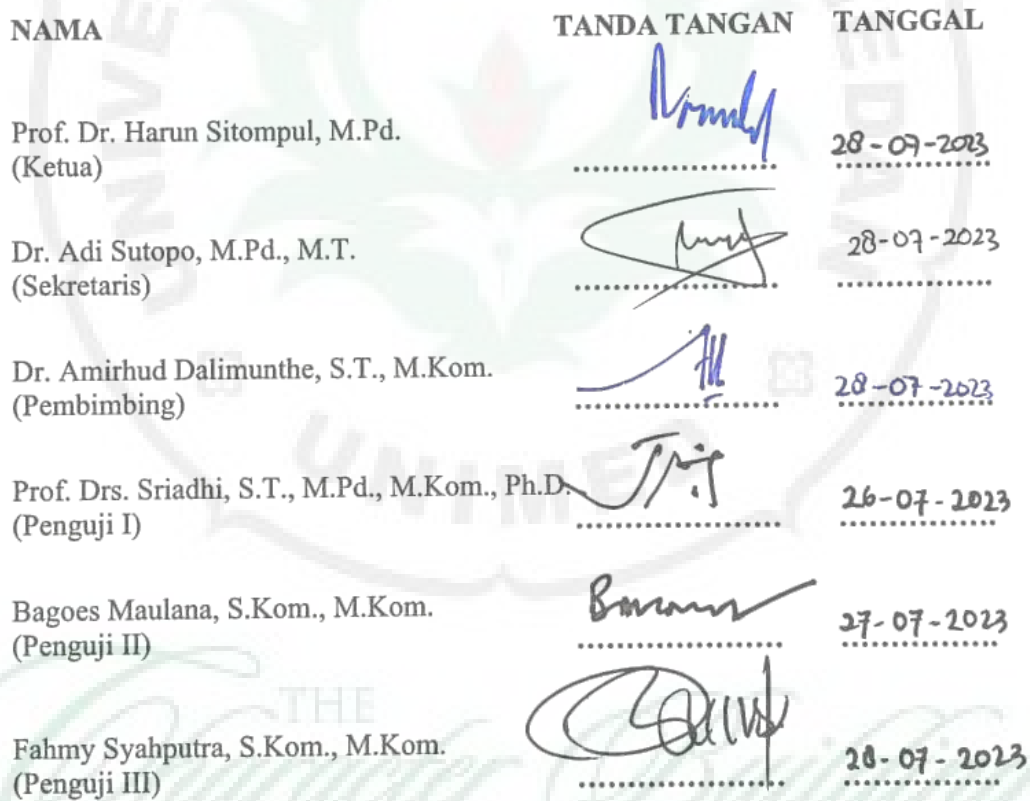 NAMA TANDA TANGAN TANGGAL
Prof. Dr. Harun Sitompul, M.Pd.
(Ketua) 28-07-2023
Dr. Adi Sutopo, M.Pd., M.T. 28-07-2023
(Sekretaris)
Dr. Amirhud Dalimunthe, S.T., M.Kom.
(Pembimbing) 28-07-2023
Prof. Drs. Sriadhi, S.T., M.Pd., M.Kom., Ph.D.
(Penguji I) 26-07-2023
Bagoes Maulana, S.Kom., M.Kom.
(Penguji II) 27-07-2023
THE
Fahmy Syahputra, S.Kom., M.Kom.
(Penguji III) 28-07-2023
UNIMED